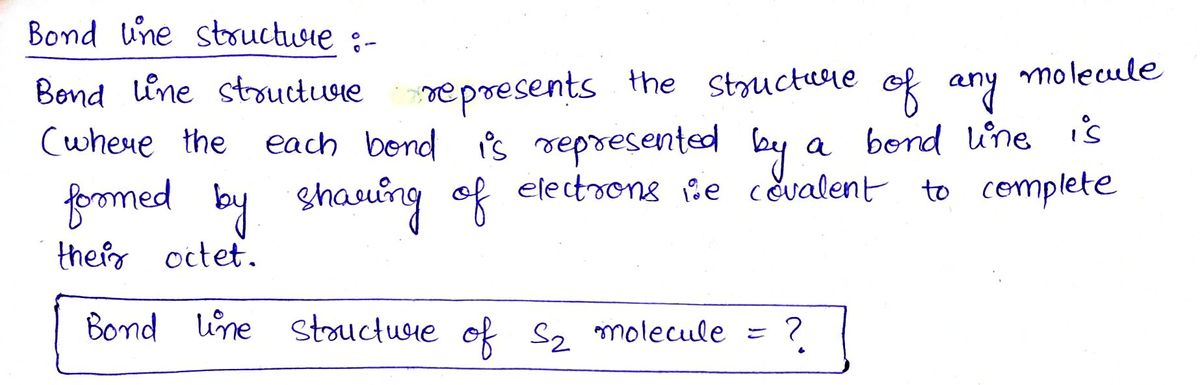 Bond line structure :-
Bond line structure represents the structure of any molecule
(where the each bond is represented by a bond line is
formed by sharing of electrons i.e covalent to complete
their octet.
Bond line structure of S₂ molecule = ?